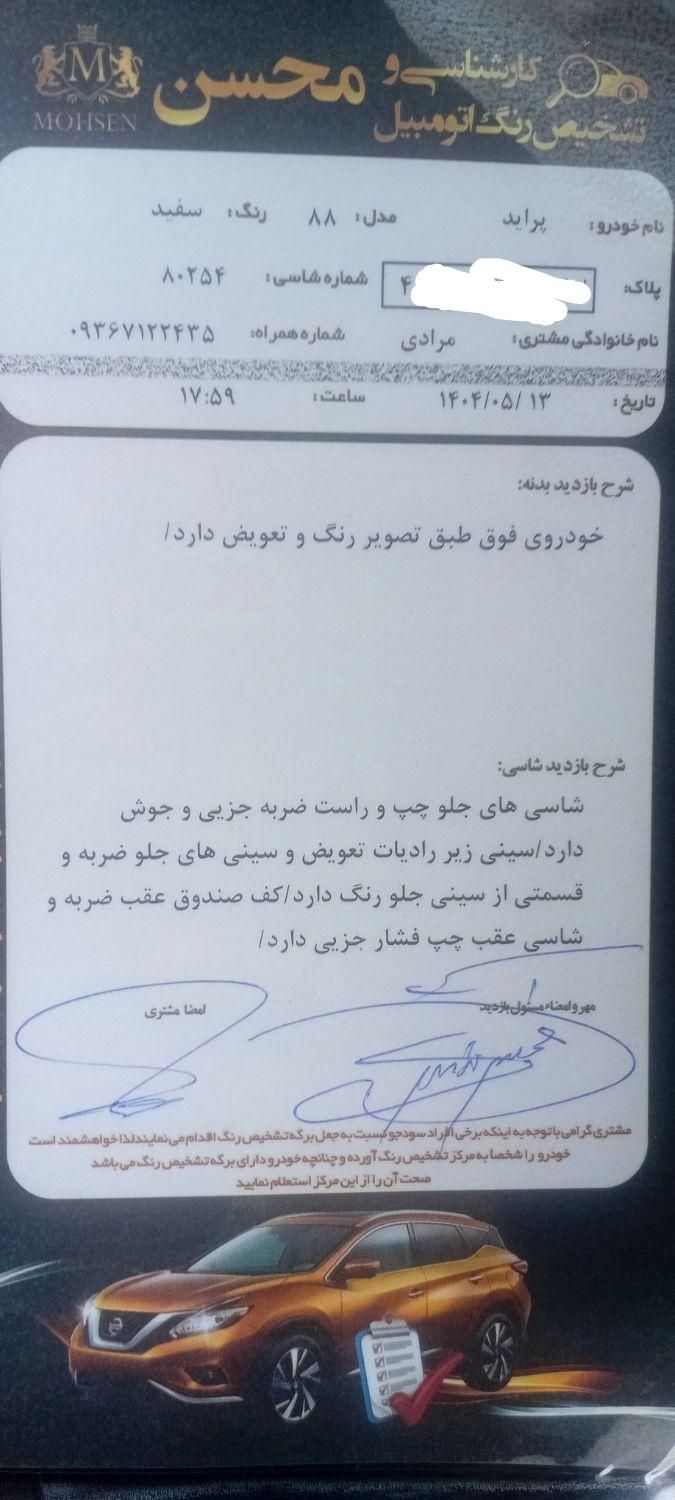 M
MOHSEN
کارشناسی و
تشخیص رنگ اتومبیل
محسن
نام خودرو: پراید مدل: ۸۸ رنگ: سفید
پلاک: ۴ شماره شاسی: ۸۰۲۵۴
نام خانوادگی مشتری: مرادی شماره همراه: ۰۹۳۶۷۱۲۲۴۳۵
تاریخ: ۱۴۰۴/۰۵/۱۳ ساعت: ۱۷:۵۹
شرح بازدید بدنه:
خودروی فوق طبق تصویر رنگ و تعویض دارد/
شرح بازدید شاسی:
شاسی های جلو چپ و راست ضربه جزیی و جوش
دارد/سینی زیر رادیات تعویض و سینی های جلو ضربه و
قسمتی از سینی جلو رنگ دارد/کف صندوق عقب ضربه و
شاسی عقب چپ فشار جزیی دارد/
مهر و امضاء مسئول بازدید امضا مشتری
مشتری گرامی با توجه به اینکه برخی افراد سودجو نسبت به جعل برگه تشخیص رنگ اقدام می نمایند لذا خواهشمند است
خودرو را شخصاً به مرکز تشخیص رنگ آورده و چنانچه خودرو دارای برگه تشخیص رنگ می باشد
صحت آن را از این مرکز استعلام نمایید